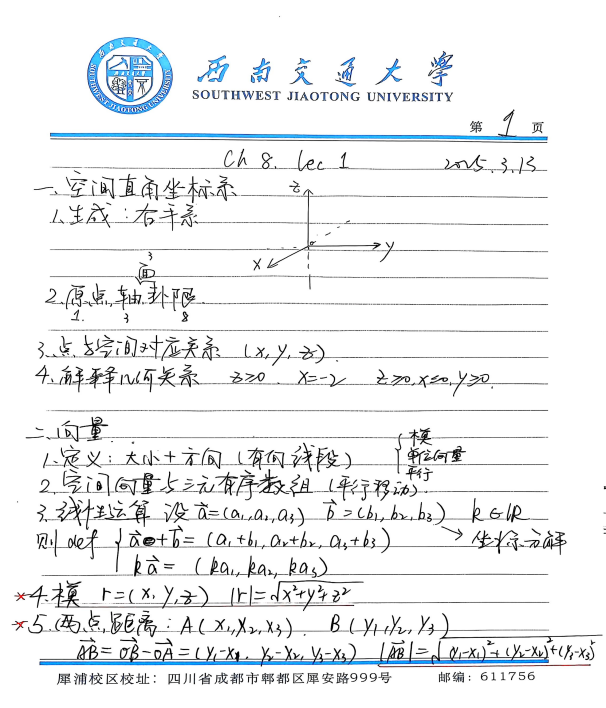 西南交通大学
SOUTHWEST JIAOTONG UNIVERSITY
第 1 页
Ch 8. lec 1 2025.3.13
一、空间直角坐标系
1、生成：右手系
z
o
y
x
3
面
2、原点、轴、卦限.
1. 3 8
3、点与空间对应关系 (x, y, z).
4、解释几何关系 z≥0 x=-2 z≥0, x≤0, y≥0
二、向量.
1、定义：大小+方向 (有向线段) { 模 单位向量 平行
2、空间向量与三元有序数组 (平行移动).
3、线性运算 设 a⃗=(a₁,a₂,a₃) b⃗=(b₁,b₂,b₃) k∈ℝ
则 def { a⃗+b⃗=(a₁+b₁, a₂+b₂, a₃+b₃) → 坐标分解
ka⃗=(ka₁, ka₂, ka₃)
*4、模 r=(x, y, z) |r|=√x²+y²+z²
*5、两点距离：A(x₁,x₂,x₃). B(y₁,y₂,y₃)
AB⃗=OB⃗-OA⃗=(y₁-x₁, y₂-x₂, y₃-x₃) |AB⃗|=√(y₁-x₁)²+(y₂-x₂)²+(y₃-x₃)²
犀浦校区校址：四川省成都市郫都区犀安路999号 邮编：611756